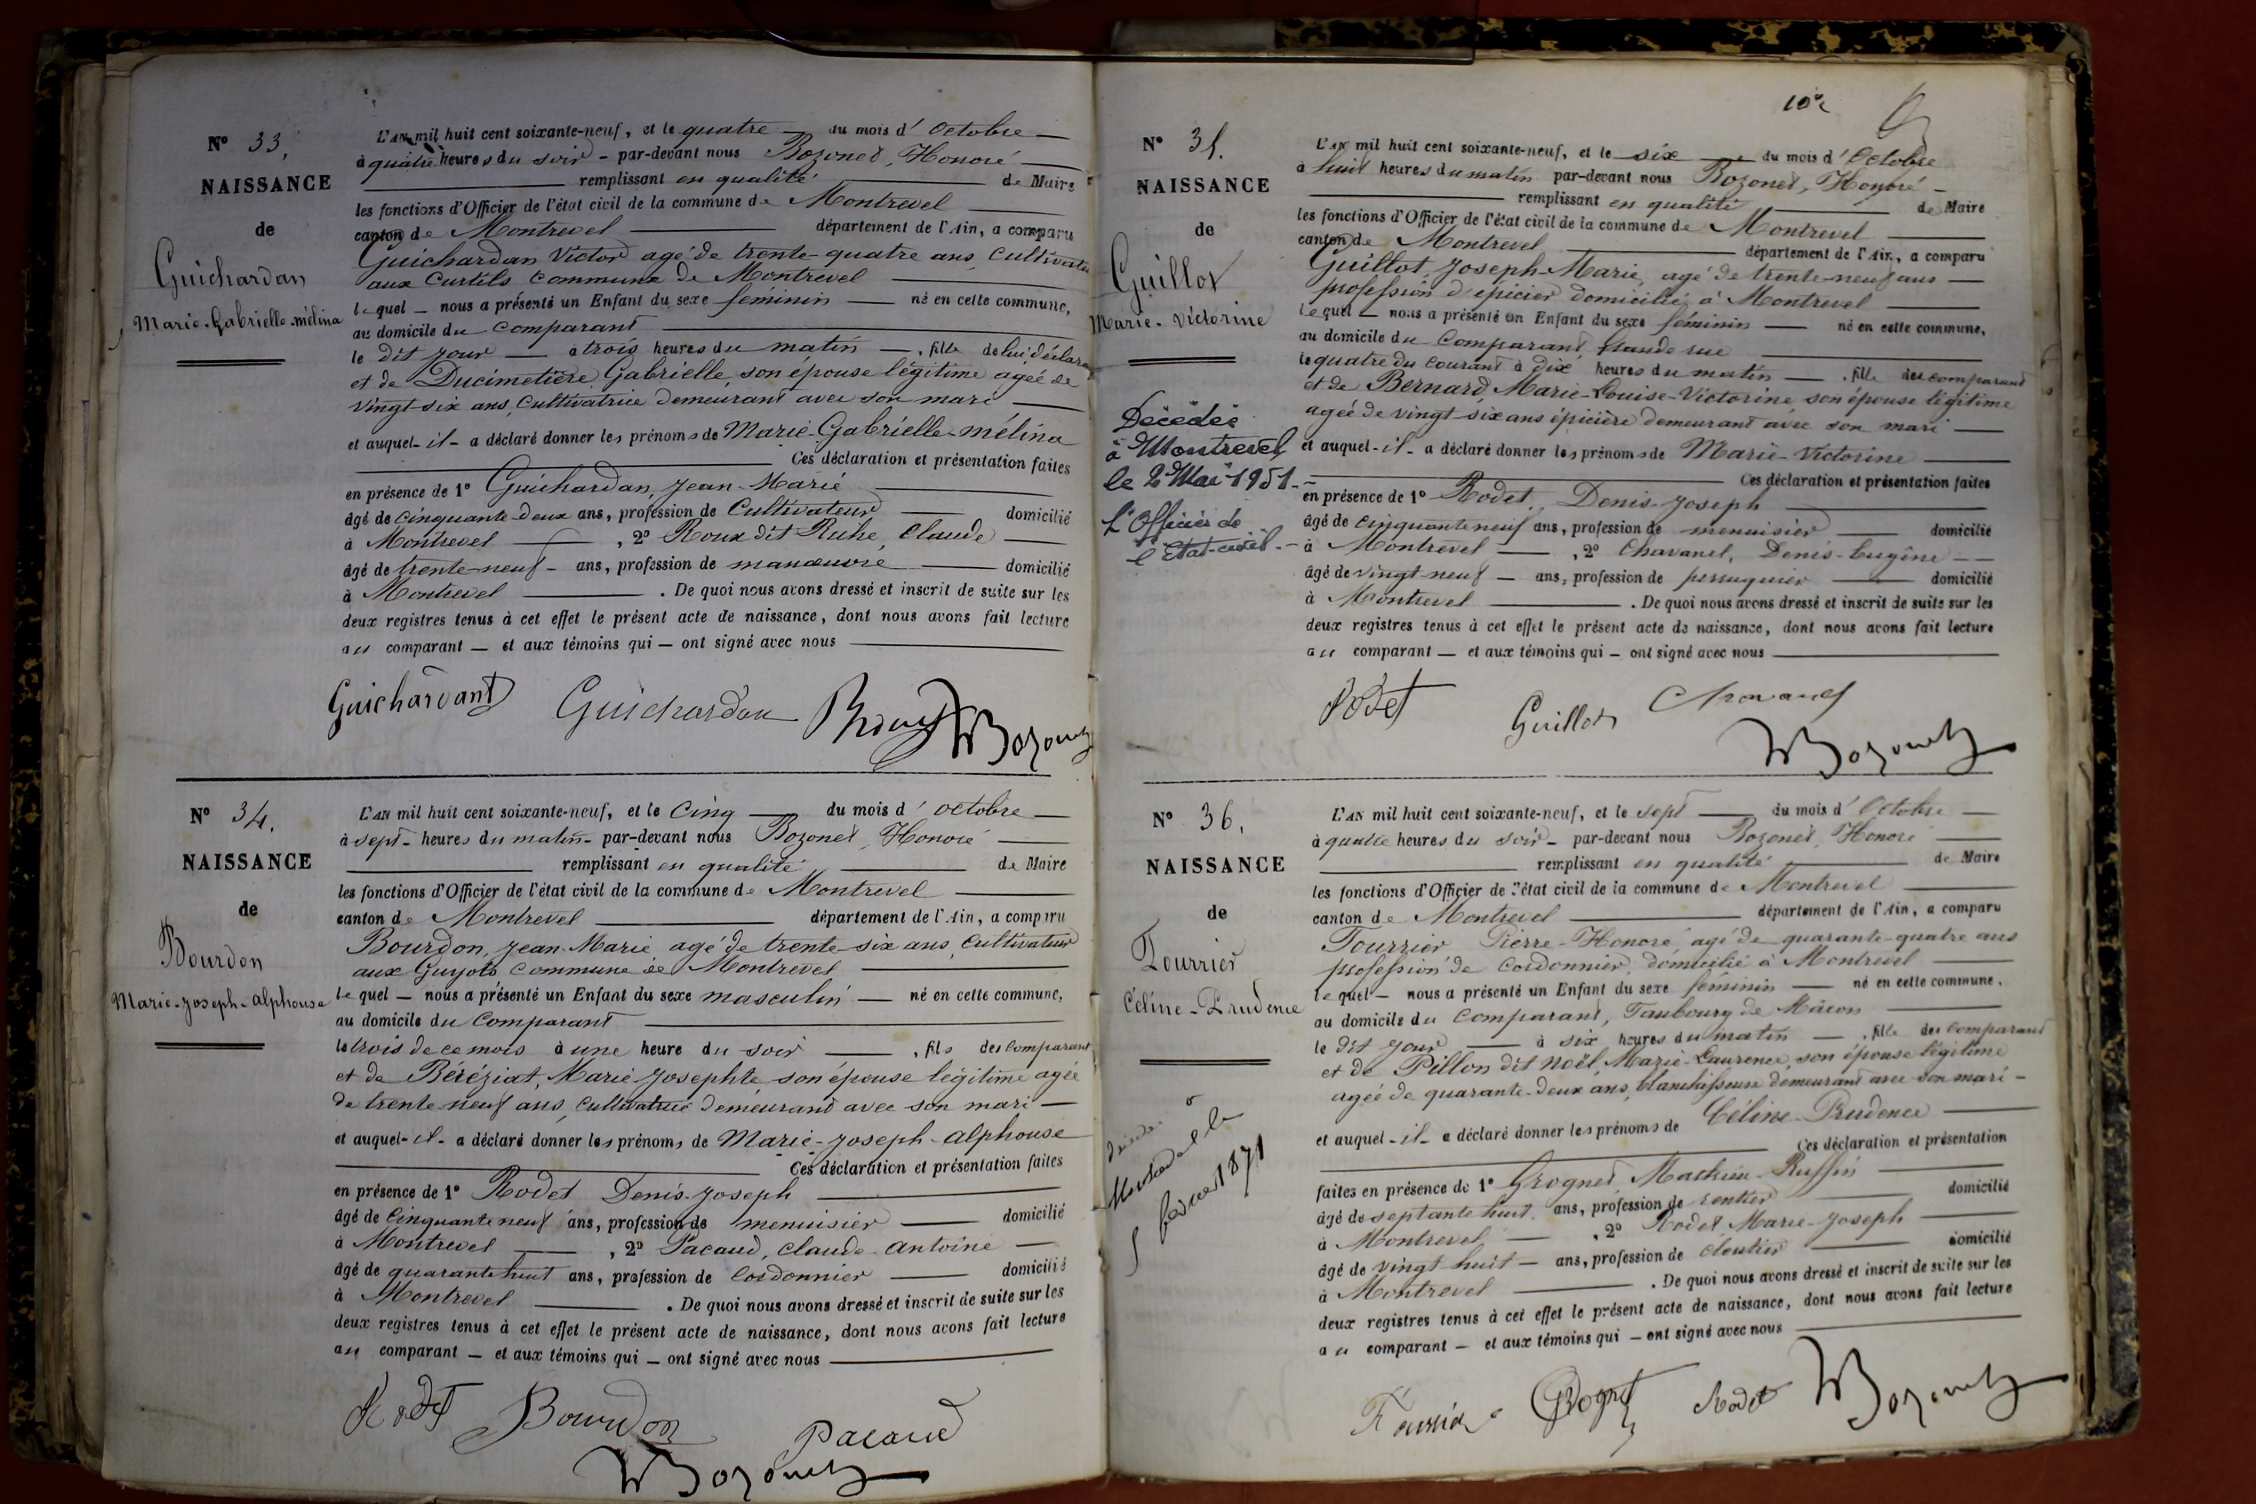 N° 33.
NAISSANCE
de
Guichardan
Marie-Gabrielle-mélina
L'AN mil huit cent soixante-neuf, et le quatre — du mois d'Octobre —
à quatre heures du soir - par-devant nous Bozonet, Honoré —
remplissant en qualité — de Maire
les fonctions d'Officier de l'état civil de la commune de Montrevel —
canton de Montrevel — département de l'Ain, a comparu
Guichardan Victor agé de trente-quatre ans, Cultivateur
aux Curtils commune de Montrevel —
lequel — nous a présenté un Enfant du sexe féminin — né en cette commune,
au domicile du comparant —
le dit jour — à trois heures du matin —, fille de lui déclarant
et de Ducimetière Gabrielle, son épouse légitime agée de
vingt-six ans, Cultivatrice demeurant avec son mari —
et auquel-il- a déclaré donner les prénoms de Marie-Gabrielle-mélina
Ces déclaration et présentation faites
en présence de 1° Guichardan, Jean-Marie —
âgé de cinquante-deux ans, profession de Cultivateur — domicilié
à Montrevel —, 2° Roux dit Ruhe, Claude —
âgé de trente-neuf - ans, profession de manoeuvre — domicilié
à Montrevel —. De quoi nous avons dressé et inscrit de suite sur les
deux registres tenus à cet effet le présent acte de naissance, dont nous avons fait lecture
au comparant — et aux témoins qui — ont signé avec nous —
Guicharvant Guichardan Roux Bozonet
N° 34.
NAISSANCE
de
Bourdon
Marie-Joseph-Alphonse
L'AN mil huit cent soixante-neuf, et le Cinq — du mois d'octobre —
à sept - heures du matin - par-devant nous Bozonet, Honoré —
remplissant en qualité — de Maire
les fonctions d'Officier de l'état civil de la commune de Montrevel —
canton de Montrevel — département de l'Ain, a comparu
Bourdon, Jean-Marie, agé de trente-six ans, Cultivateur
aux Guyots commune de Montrevel —
lequel — nous a présenté un Enfant du sexe masculin — né en cette commune,
au domicile du Comparant —
le trois de ce mois à une heure du soir —, fils du comparant
et de Béréziat, Marie Josephte, son épouse légitime agée
de trente neuf ans, cultivatrice demeurant avec son mari —
et auquel-il- a déclaré donner les prénoms de Marie-Joseph-Alphonse
Ces déclaration et présentation faites
en présence de 1° Rodet Denis-Joseph —
âgé de Cinquante neuf ans, profession de menuisier — domicilié
à Montrevel —, 2° Pacaud, Claude-Antoine —
âgé de quarante huit ans, profession de Cordonnier — domicilié
à Montrevel —. De quoi nous avons dressé et inscrit de suite sur les
deux registres tenus à cet effet le présent acte de naissance, dont nous avons fait lecture
au comparant — et aux témoins qui — ont signé avec nous —
Rodet Bourdon Pacaud
Bozonet
N° 35.
NAISSANCE
de
Guillot
Marie-Victorine
Décédée
à Montrevel
le 2 Mai 1951.-
L'Officier de
l'Etat-civil.-
L'AN mil huit cent soixante-neuf, et le six — du mois d'Octobre
à huit heures du matin par-devant nous Bozonet, Honoré —
remplissant en qualité — de Maire
les fonctions d'Officier de l'état civil de la commune de Montrevel —
canton de Montrevel — département de l'Ain, a comparu
Guillot, Joseph-Marie, agé de trente-neuf ans —
profession d'épicier domicilié à Montrevel —
lequel — nous a présenté un Enfant du sexe féminin — né en cette commune,
au domicile du Comparant, Grande rue —
le quatre du courant à dix heures du matin —, fille du comparant
et de Bernard, Marie-Louise-Victorine son épouse légitime
agée de vingt-six ans épicière demeurant avec son mari —
et auquel-il- a déclaré donner les prénoms de Marie-Victorine —
Ces déclaration et présentation faites
en présence de 1° Rodet, Denis-Joseph —
âgé de Cinquante neuf ans, profession de menuisier — domicilié
à Montrevel —, 2° Chavanel, Denis-Eugène —
âgé de vingt-neuf — ans, profession de perruquier — domicilié
à Montrevel —. De quoi nous avons dressé et inscrit de suite sur les
deux registres tenus à cet effet le présent acte de naissance, dont nous avons fait lecture
au comparant — et aux témoins qui — ont signé avec nous —
Rodet Guillot Chavanel
Bozonet
N° 36.
NAISSANCE
de
Fourrier
Céline-Prudence
L'AN mil huit cent soixante-neuf, et le sept — du mois d'Octobre —
à quatre heures du soir - par-devant nous Bozonet, Honoré —
remplissant en qualité — de Maire
les fonctions d'Officier de l'état civil de la commune de Montrevel —
canton de Montrevel — département de l'Ain, a comparu
Fourrier Pierre-Honoré, agé de quarante-quatre ans
profession de Cordonnier, domicilié à Montrevel —
lequel — nous a présenté un Enfant du sexe féminin — né en cette commune,
au domicile du Comparant, Faubourg de Mâcon —
le dit jour — à six heures du matin —, fille du comparant
et de Pillon dit Noël, Marie-Laurence, son épouse légitime
agée de quarante-deux ans, blanchisseuse demeurant avec son mari —
et auquel-il- a déclaré donner les prénoms de Céline-Prudence —
Ces déclaration et présentation
faites en présence de 1° Grognet, Mathieu-Ruffin —
âgé de septante huit ans, profession de rentier — domicilié
à Montrevel —, 2° Rodet, Marie-Joseph —
âgé de vingt huit — ans, profession de cloutier — domicilié
à Montrevel —. De quoi nous avons dressé et inscrit de suite sur les
deux registres tenus à cet effet le présent acte de naissance, dont nous avons fait lecture
au comparant — et aux témoins qui — ont signé avec nous —
Fourrier Grognet Rodet Bozonet